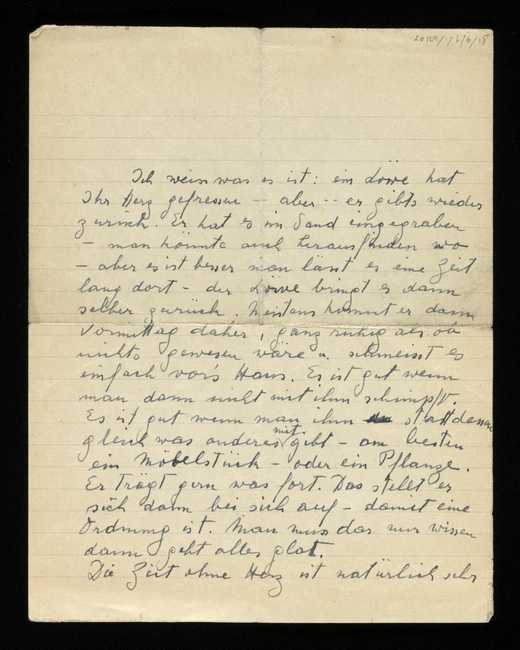 Ich weiss was es ist: ein Löwe hat
Ihr Herz gefressen – aber -- er gibts wieder
zurück. Er hat es im Sand eingegraben
– man könnte auch herausfinden wo
– aber es ist besser man lässt es eine Zeit
lang dort – der Löwe bringt es dann
selber zurück. Meistens kommt er dann
Vormittag daher, ganz ruhig als ob
nichts gewesen wäre u. schmeisst es
einfach vor's Haus. Es ist gut wenn
man dann nicht mit ihm schimpft.
Es ist gut wenn man ihm stattdessen
gleich was anderes mit gibt – am besten
ein Möbelstück – oder ein Pflanze.
Er trägt gern was fort. Das stellt er
sich dann bei sich auf – damit eine
Ordnung ist. Man muss das nur wissen
dann geht alles glat.
Die Zeit ohne Herz ist natürlich sehr